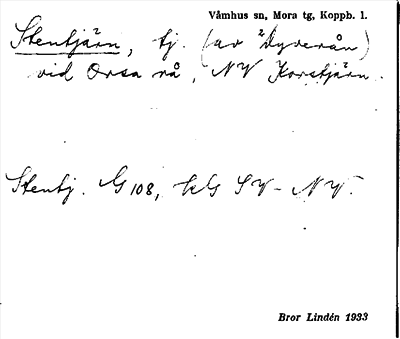 Våmhus sn, Mora tg, Koppb. l.
Stentjärn, tj. (av Dyverån)
vid Orsa rå, NV Korstjärn.
Stentj. G 108, kG SV - NV.
Bror Lindén 1933